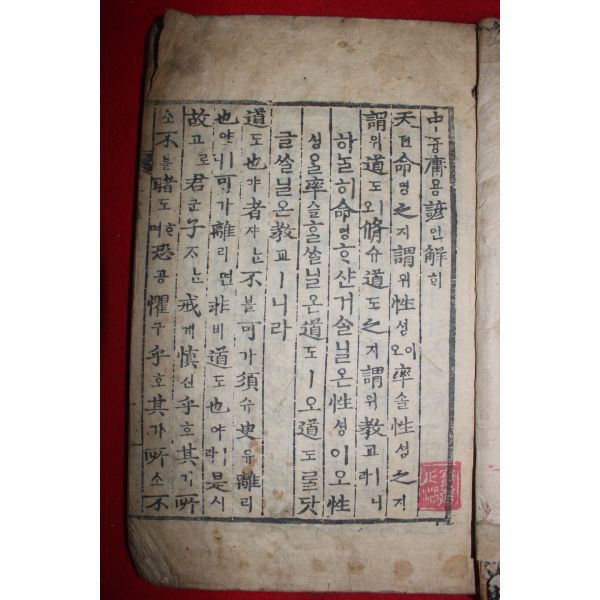 中듕庸용諺언解ᄒᆡ
天텬命명之지謂위性셩이오率솔性셩之지
謂위道도오脩슈道도之지謂위敎교ㅣ니라
하ᄂᆞᆯ히命명ᄒᆞ샨거슬닐온性셩이오性
셩을率솔ᄒᆞᆯ쓸닐온道도ㅣ오道도ᄅᆞᆯ닷
글쓸닐온敎교ㅣ니라
道도也야者쟈ᄂᆞᆫ不블可가須슈臾유離리
也야ㅣ니可가離리면非비道도也야ㅣ라是시
故고로君군子ᄌᆞᄂᆞᆫ戒계愼신乎호其기所
소不블睹도ᄒᆞ며恐공懼구乎호其기所소不